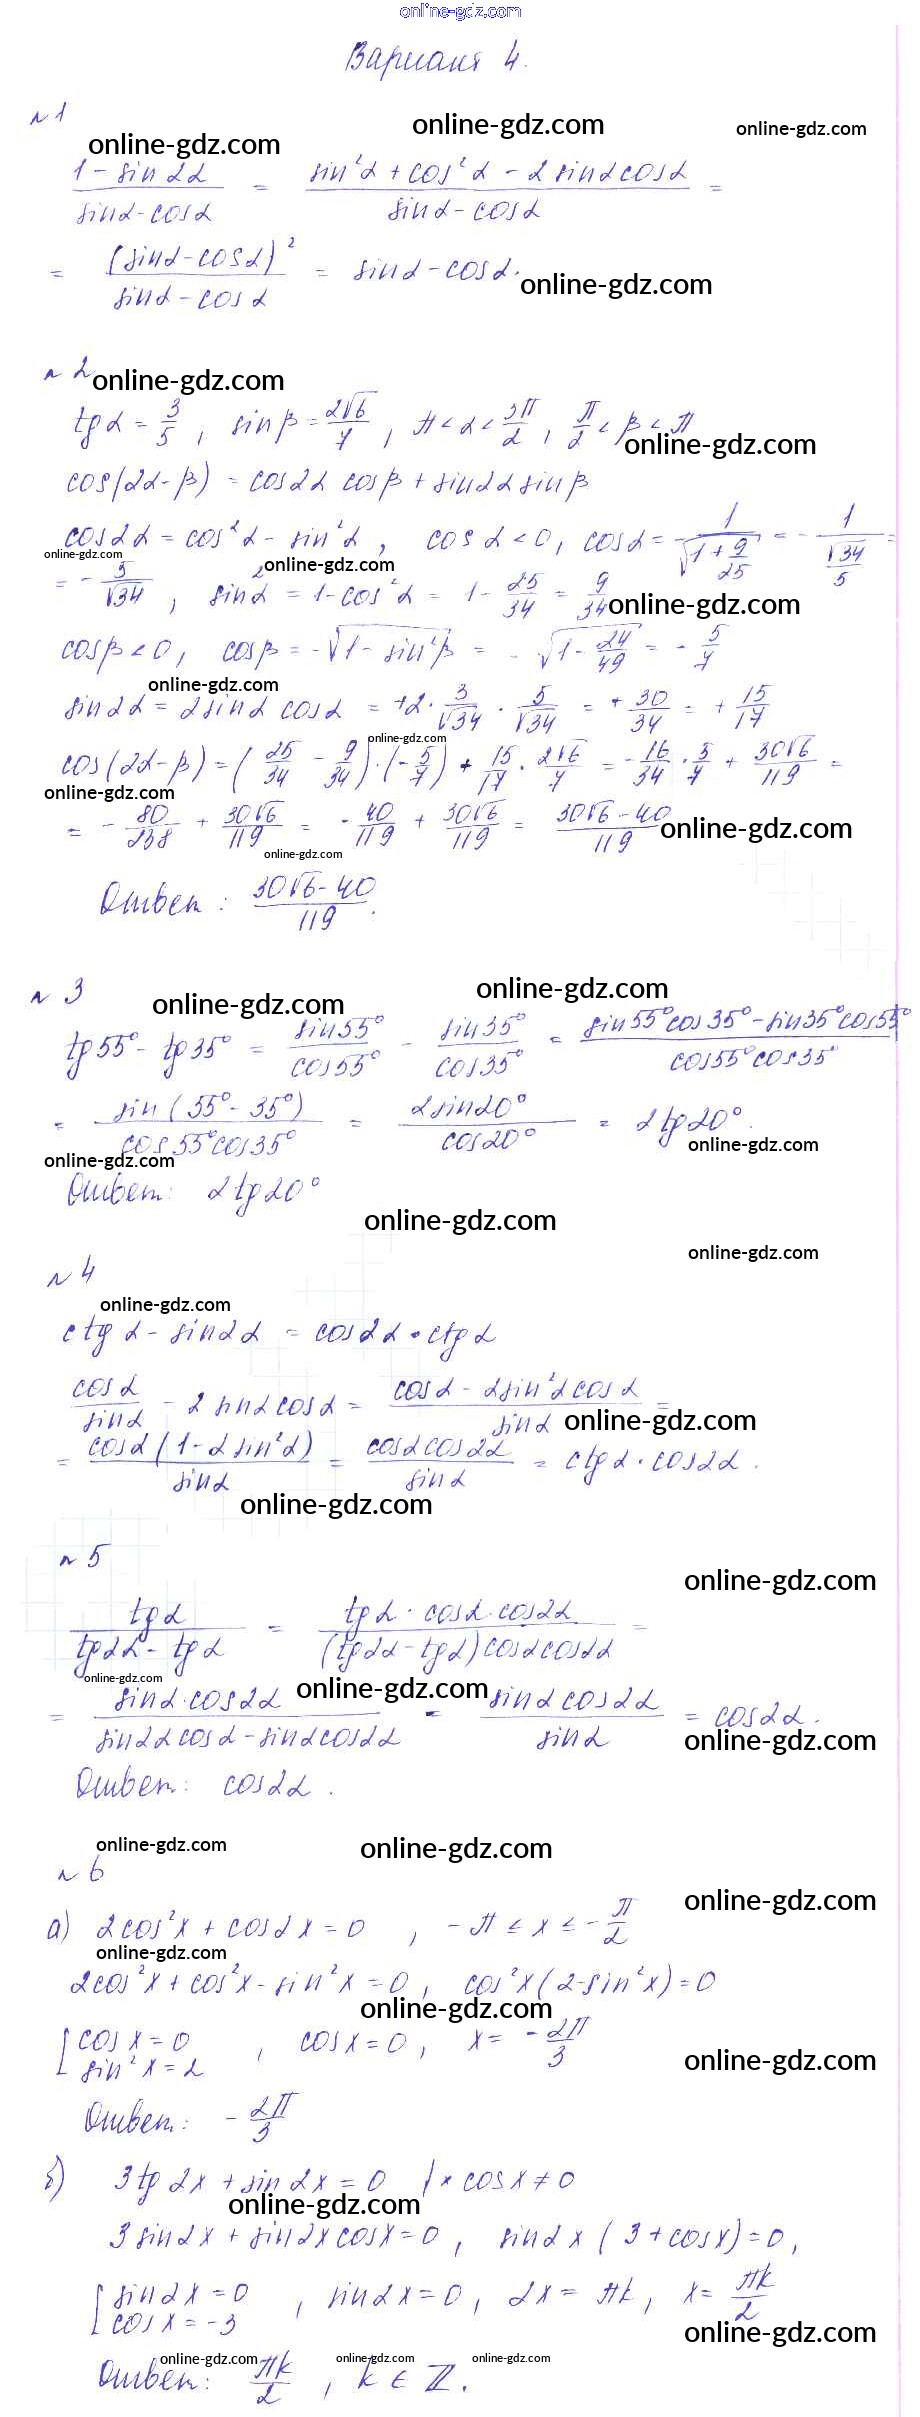 online-gdz.com
Вариант 4.
№1
online-gdz.com online-gdz.com online-gdz.com
(1 - sin 2α)/(sinα - cosα) = (sin²α + cos²α - 2 sinα cosα)/(sinα - cosα) =
= (sinα - cosα)²/(sinα - cosα) = sinα - cosα.
online-gdz.com
№ 2
online-gdz.com
tg α = 3/5, sin β = 2√6/7, π < α < 3π/2, π/2 < β < π
online-gdz.com
cos(2α - β) = cos2α cosβ + sin2α sinβ
cos2α = cos²α - sin²α, cos α < 0, cosα = -1/√(1 + 9/25) = -1/(√34/5) =
online-gdz.com online-gdz.com
= -5/√34, sin²α = 1 - cos²α = 1 - 25/34 = 9/34
online-gdz.com
cosβ < 0, cosβ = -√(1 - sin²β) = -√(1 - 24/49) = -5/7
online-gdz.com
sin2α = 2 sinα cosα = +2 · 3/√34 · 5/√34 = +30/34 = +15/17
online-gdz.com
cos(2α - β) = (25/34 - 9/34) · (-5/7) + 15/17 · 2√6/7 = -16/34 · 5/7 + 30√6/119 =
online-gdz.com
= -80/238 + 30√6/119 = -40/119 + 30√6/119 = (30√6 - 40)/119
online-gdz.com
online-gdz.com
Ответ: (30√6 - 40)/119.
№ 3
online-gdz.com online-gdz.com
tg 55° - tg 35° = sin55°/cos55° - sin35°/cos35° = (sin55°cos35° - sin35°cos55°)/(cos55°cos35°)
= sin(55° - 35°)/(cos55°cos35°) = 2sin20°/cos20° = 2tg20°.
online-gdz.com
online-gdz.com
Ответ: 2tg20°
online-gdz.com
online-gdz.com
№ 4
online-gdz.com
ctg α - sin2α = cos2α · ctg α
cosα/sinα - 2 sinα cosα = (cosα - 2sin²α cosα)/sinα =
online-gdz.com
= cosα(1 - 2sin²α)/sinα = cosα cos2α/sinα = ctg α · cos2α.
online-gdz.com
№ 5
online-gdz.com
tg α/(tg 2α - tg α) = (tg α · cosα · cos2α)/((tg2α - tgα)cosαcos2α) =
online-gdz.com online-gdz.com
= (sinα · cos2α)/(sin2α cosα - sinαcos2α) = (sinαcos2α)/sinα = cos2α.
online-gdz.com
Ответ: cos2α.
online-gdz.com online-gdz.com
№ 6
online-gdz.com
а) 2cos²x + cos2x = 0, -π ≤ x ≤ -π/2
online-gdz.com
2cos²x + cos²x - sin²x = 0, cos²x(2 - sin²x) = 0
online-gdz.com
[cos x = 0
sin²x = 2, cos x = 0, x = -2π/3
online-gdz.com
Ответ: -2π/3
б) 3tg 2x + sin 2x = 0 |× cos x ≠ 0
online-gdz.com
3sin2x + sin2x cosx = 0, sin2x (3 + cosx) = 0,
[sin2x = 0
cos x = -3, sin2x = 0, 2x = πk, x = πk/2
online-gdz.com
online-gdz.com online-gdz.com online-gdz.com
Ответ: πk/2, k ∈ Z.